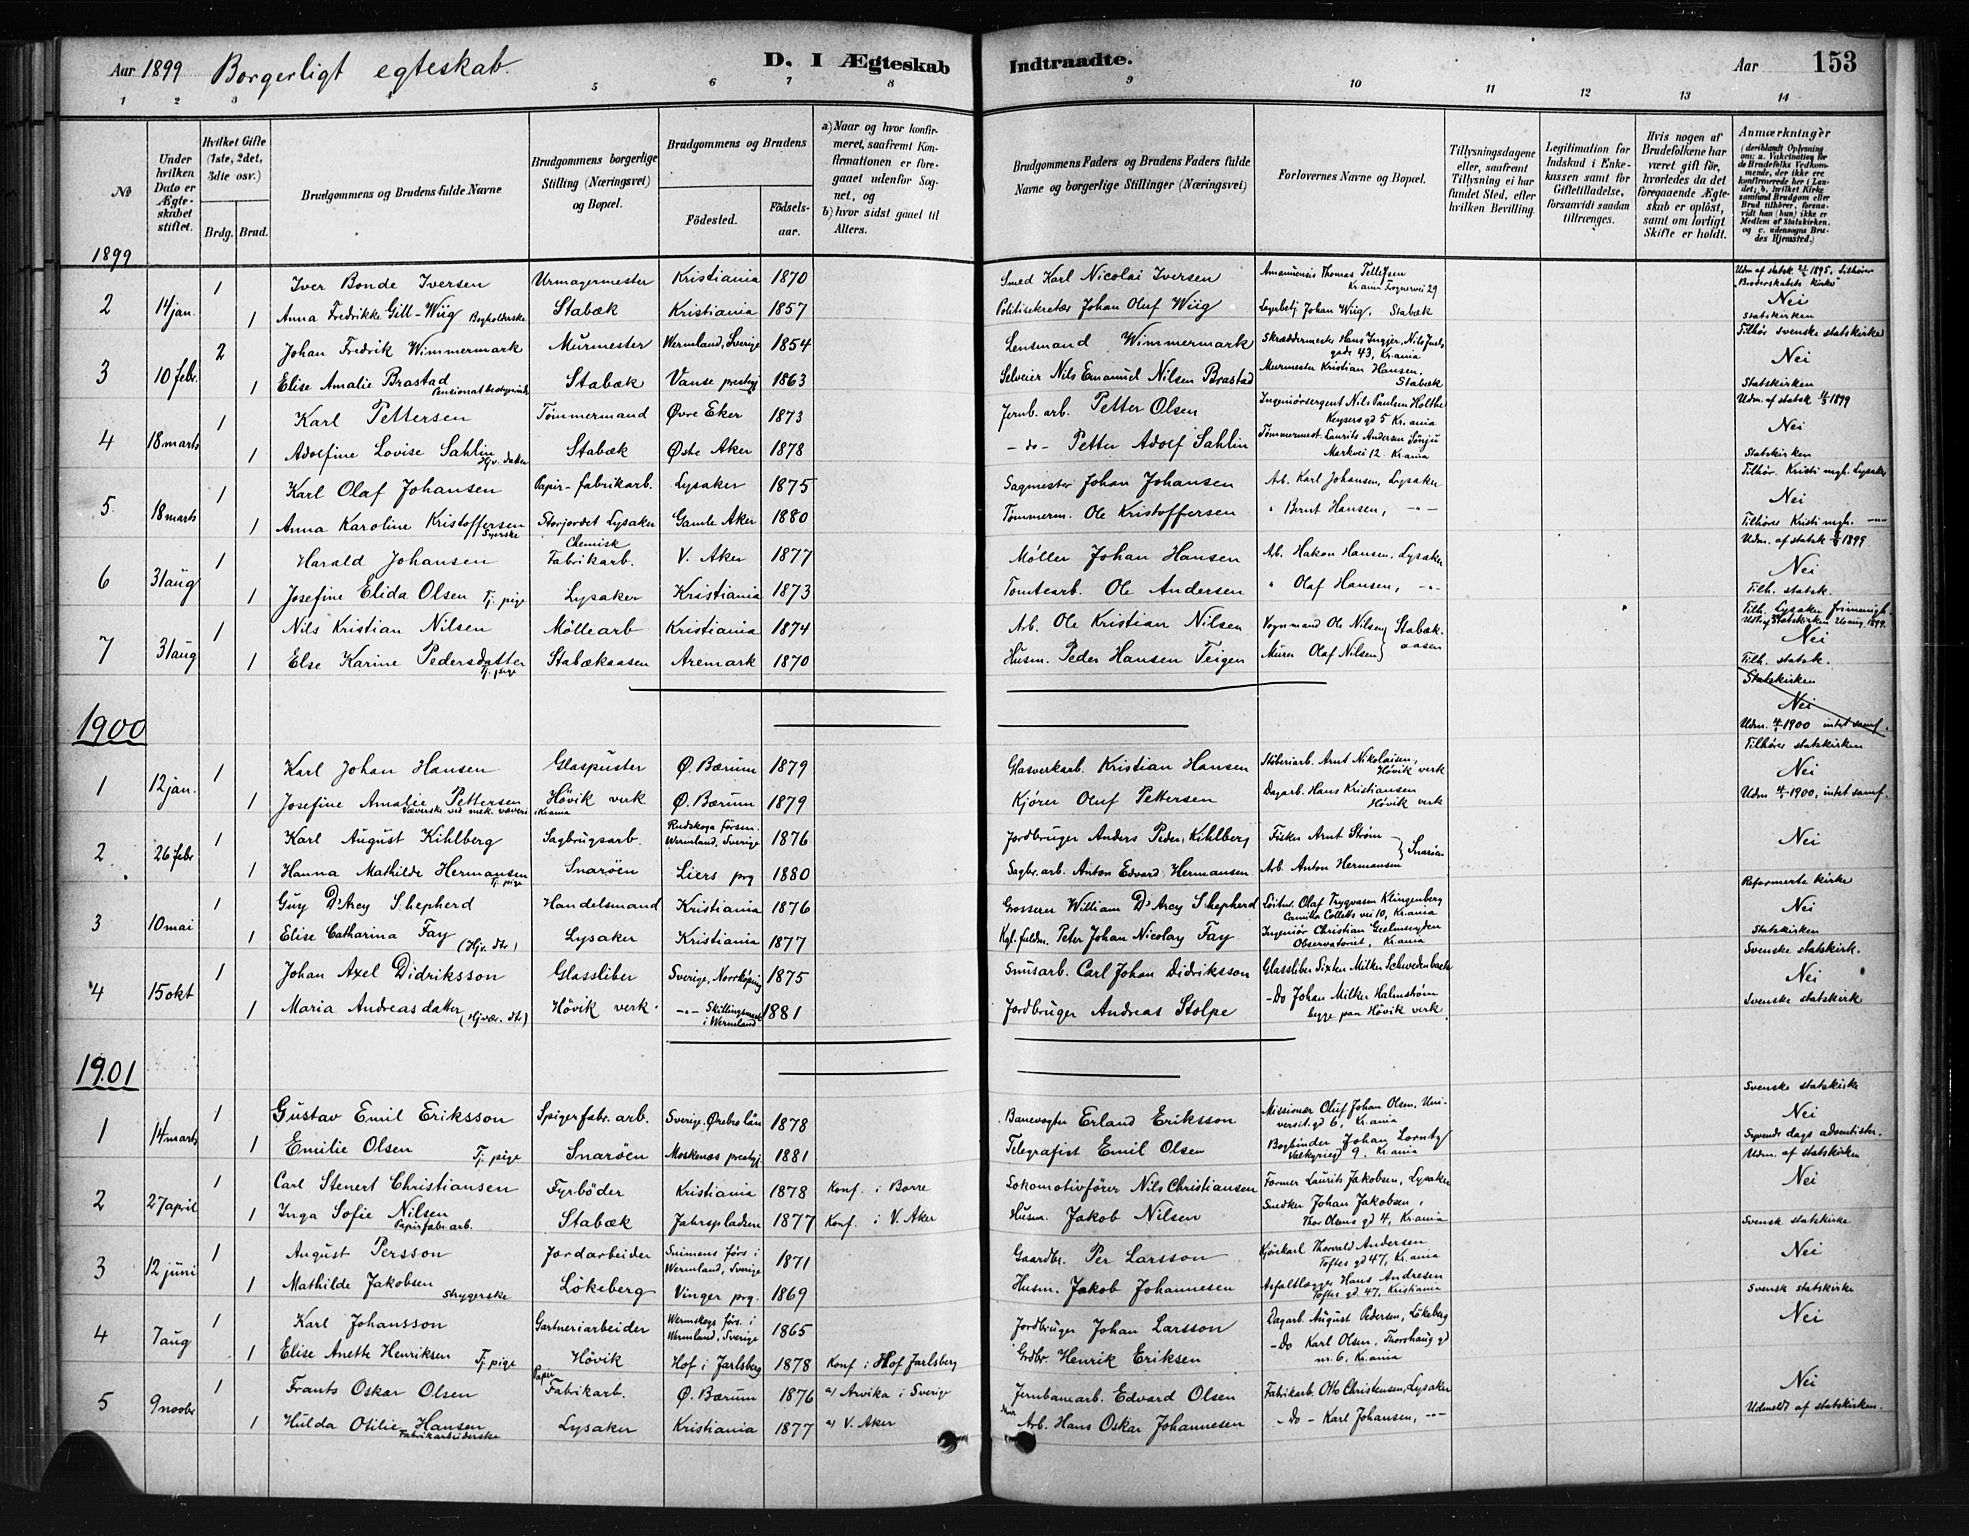 Aar 1899 Borgerligt egteskab. D. I Ægteskab Indtraadte. Aar 153
1 2 3 5 6 7 8 9 10 11 12 13 14
No
Under hvilken Dato er Ægteskabet stiftet.
Hvilket Gifte (1ste, 2det, 3die osv.)
Brdg. Brud.
Brudgommens og Brudens fulde Navne
Brudgommens borgerlige Stilling (Næringsvei) og Bopæl.
Brudgommens og Brudens
Födested. Födselsaar.
a) Naar og hvor konfirmeret, saafremt Konfirmationen er foregaaet udenfor Sognet, og
b) hvor sidst gaaet til Alters.
Brudgommens Faders og Brudens Faders fulde Navne og borgerlige Stillinger (Næringsvei)
Forlovernes Navne og Bopæl.
Tillysningsdagene eller, saafremt Tillysning ei har fundet Sted, efter hvilken Bevilling.
Legitimation for Indskud i Enkekassen samt for Giftetilladelse, forsaavidt saadan tiltrænges.
Hvis nogen af Brudefolkene har været gift för, hvorledes da det foregaaende Ægteskab er oplöst, samt om lovligt Skifte er holdt.
Anmærkninger (deriblandt Oplysning om: a. Vakcination for de Brudefolks Vedkommende, der ikke ere konfirmerede her i Landet; b. hvilket Kirkesamfund Brudgom eller Brud tilhörer, forsaavidt han (hun) ikke er Medlem af Statskirken, og c. udensogns Brudes Hjemsted.)
1899
1 Iver Bonde Iversen Urmagermester Kristiania 1870 Smed Karl Nicolai Iversen Amanuensis Thomas Tellefsen Kr.ania Frognervei 29 Udm. af statsk 1895, Tilhører "Broderskabets kirke"
2 14 jan. 1 Anna Fredrikke Gill-Wiig Bogholderske Stabæk Kristiania 1857 Politisekretær Johan Oluf Wiig Johan Wiig, Stabæk Nei Statskirken
2 Johan Fredrik Wimmermark Murmester Wermland, Sverige 1854 Lensmand Wimmermark Skræddermester Hans Ingjer, Nils Juels gade 43, Kr.ania Tilhør svenske statskirke
3 10 febr. 1 Elise Amalie Brastad Pensionatbestyrinde Stabæk Vanse prestgj 1863 Selveier Nils Emanuel Nilsen Brastad Murmester Kristian Hansen, Stabæk Nei Statskirken
1 Karl Pettersen Tømmermand Øvre Eker 1873 Jernb. arb. Petter Olsen Ingeniørsergent Nils Paulsen Holthe Keysers gd 5 Kr.ania Udm. af statsk 1899
4 18 marts 1 Adolfine Lovise Sahlin Hjv. datter Stabæk Østre Aker 1878 -do- Petter Adolf Sahlin Tømmermest. Laurits Andersen Markvei 12 Kr.ania Nei Statskirken
1 Karl Olaf Johansen Papir-fabrikarb. Lysaker 1875 Sagmester Johan Johansen Arb. Karl Johansen, Lysaker Tilhør. Kristi mgh. Lysaker
5 18 marts 1 Anna Karoline Kristoffersen Syerske Storjordet Lysaker Gamle Aker 1880 Tømmerm. Ole Kristoffersen " Bernt Hansen, -"- Nei Tilhører Kristi mgh. -"-
1 Harald Johansen Chemisk Fabrikarb. V. Aker 1877 Møller Johan Hansen Arb. Hakon Hansen, Lysaker Udm. af statsk 1899
6 31 aug 1 Josefine Elida Olsen Tj. pige Lysaker Kristiania 1873 Tomtearb. Ole Andersen " Olaf Hansen, -"- Nei Tilh. statsk.
1 Nils Kristian Nilsen Møllearb Kristiania 1874 Arb. Ole Kristian Nilsen Vognmand Ole Nilsen Stabæk Tilh. Lysaker frimenigh. Udt. af Statskirken 26 aug 1899.
7 31 aug 1 Else Karine Pedersdatter Tj. pige Stabækaasen Aremark 1870 Husm. Peder Hansen Teigen Murer Olaf Nilsen aasen Nei Tilh. statsk.
Statskirken
Nei
Udm. 4/1 1900 intet samf.
1900
1 Karl Johan Hansen Glaspuster Ø. Bærum 1879 Glasverkarb. Kristian Hansen Støberiarb. Arnt Nikolaisen, Høvik verk Tilhører statskirken
1 12 jan. 1 Josefine Amalie Pettersen Væverske ved mek. væveri i Kr.ania Høvik verk Ø. Bærum 1879 Kjører Oluf Pettersen Dagarb. Hans Kristiansen Høvik verk Nei Udm. 4/1 1900, intet samf.
1 Karl August Kihlberg Sagbrugsarb. Rudskoga försm. Wermland, Sverige 1876 Jordbruger Anders Peder Kihlberg Fisker Arnt Strøm Snarøen
2 26 febr 1 Hanna Mathilde Hermansen Tj. pige Snarøen Liers prg 1880 Sagbr. arb. Anton Edvard Hermansen Arb. Anton Hermansen Nei
1 Guy D'Arcy Shepherd Handelsmand Kristiania 1876 Grosserer William D'Arcy Shepherd Löitn. Olaf Trygvason Klingenberg Camilla Colletts vei 10, Kr.ania Reformerte kirke
3 10 mai 1 Elise Catharina Fay (Hjv. dtr) Lysaker Kristiania 1877 Kgl. fuldm. Peter Johan Nicolay Fay Ingeniør Christian Geelmuyden Observatoriet, Kr.ania Nei Statskirken
1 Johan Axel Didriksson Glassliber Sverige, Norrköping 1875 Snusarb. Carl Johan Didriksson Glassliber Sixten Milker Schwedenback Svenske statskirk.
4 15 okt 1 Maria Andreasdatter (Hjvær. dtr) Høvik verk -"- Skillingsmark i Wermland 1881 Jordbruger Andreas Stolpe -Do Johan Milker Halmstrøm begge paa Høvik verk Nei Svenske statskirk
1901
1 Gustav Emil Eriksson Spigerfabr. arb. Sverige. Örebro län 1878 Banevogter Erland Eriksson Missionær Oluf Johan Olsen, Universit. gd 6, Kr.ania Svenske statskirke
1 14 marts 1 Emilie Olsen Tj. pige Snarøen Moskenæs prestgj. 1881 Telegrafist Emil Olsen Bogbinder Johan Lorntz Valkyriegd 9. Kr.ania Nei Syvende dags adventister. Udm. af statskirken
1 Carl Stenert Christiansen Fyrbøder Kristiania 1878 Konf. i Borre Lokomotivfører Nils Christiansen Former Laurits Jakobsen, Lysaker Nei
2 27 april 1 Inga Sofie Nilsen Papirfabr. arb. Stabæk Fahrspladsen 1877 Konf. i V. Aker Husm. Jakob Nilsen Snedker Johan Jakobsen, Thor Olsens gd 4, Kr.ania Svensk statskirke
1 August Persson Jordarbeider förs i Wermland, Sverige 1871 Gaardbr. Per Larsson Kjørekarl Thorvald Andersen Toftes gd 47, Kr.ania Nei
3 12 juni 1 Mathilde Jakobsen Strygerske Lökeberg Vinger prg. 1869 Husm. Jakob Johannesen Asfaltlægger Hans Andresen Toftes gd 47, Kristiania Svensk statskirke
1 Karl Johansson Gartneriarbeider Wermskogs förs. i Wermland, Sverige 1865 Jordbruger Johan Larsson Dagarb. August Pedersen, Lökeberg Nei
4 7 aug 1 Elise Anette Henriksen Tj. pige Høvik Hof i Jarlsberg 1878 Konf i Hof Jarlsberg Grdbr. Henrik Eriksen -Do Karl Olsen, Thorshaug gd nr. 6, Kr.ania
1 Frants Oskar Olsen Papir Fabrikarb. Ø. Bærum 1876 a/ Arvika i Sverige Jernbanearb. Edvard Olsen Fabrikarb. Otto Christensen, Lysaker Nei
5 9 novbr 1 Hulda Otilie Hansen Fabrikarbeiderske Lysaker Kristiania 1877 a/ V. Aker Arb. Hans Oskar Johannesen -Do- Karl Johansen, -"- Udmeldt af statskirken.